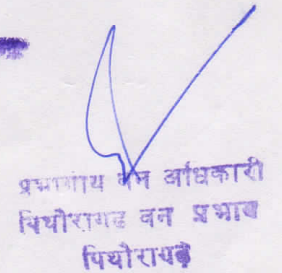 प्रभागीय वन अधिकारी
पिथौरागढ वन प्रभाग
पिथौरागढ